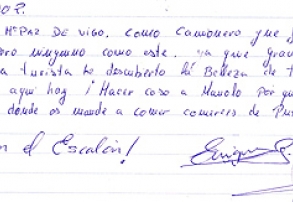 002.
Mª PAZ DE VIGO, como camionero que
pero ninguno como este, ya que
turista he descubierto la Belleza de
aquí hay ¡ Hacer caso a Manolo Por
donde os mande a comer comereis de
en el Escalón!
Enrique